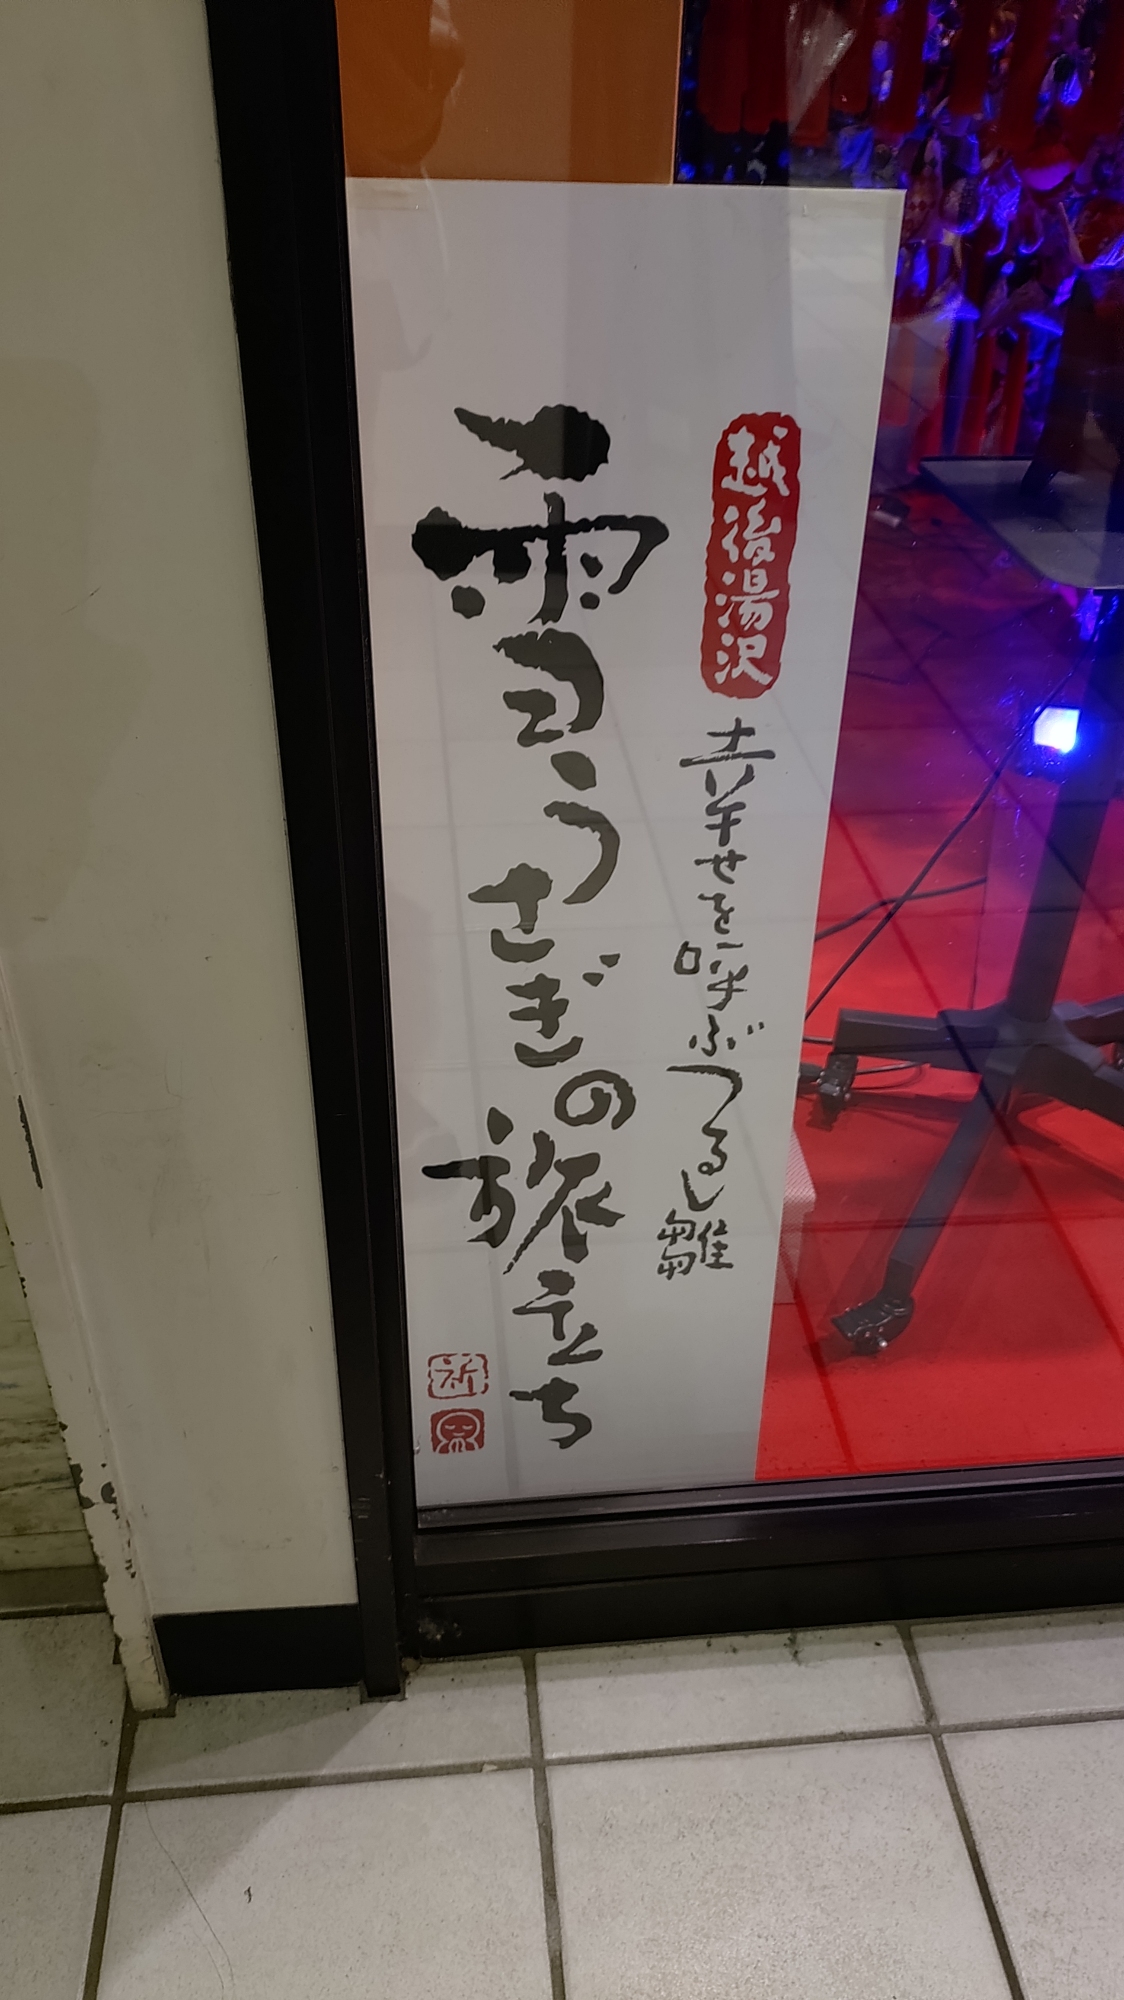 越後湯沢
幸せを呼ぶつるし雛
雪うさぎの旅立ち
祈